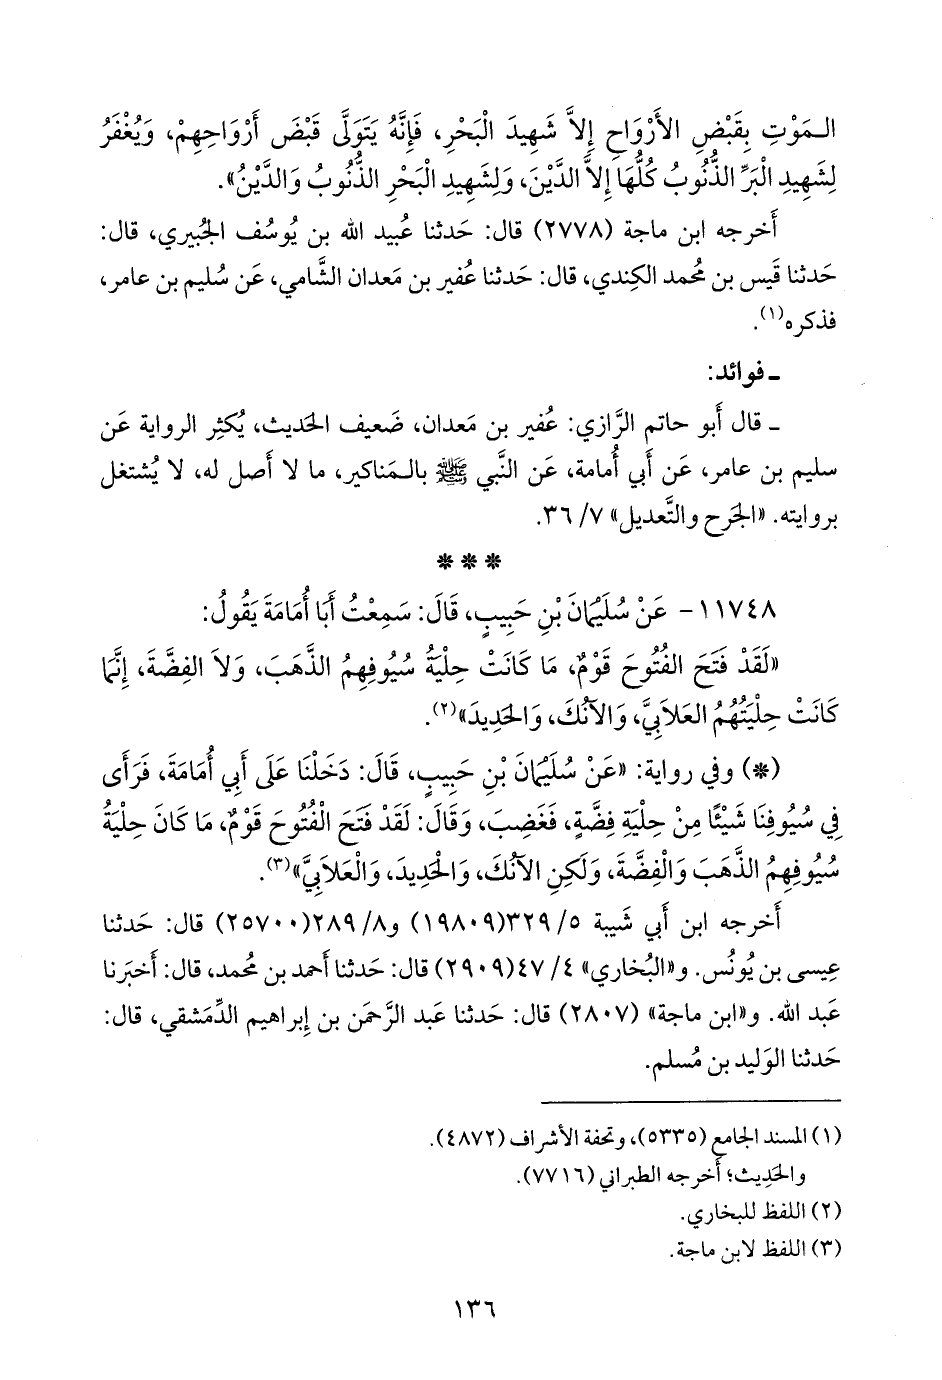 الـمَوْتِ بِقَبْضِ الأَرْوَاحِ إِلاَّ شَهِيدَ الْبَحْرِ، فَإِنَّهُ يَتَوَلَّى قَبْضَ أَرْوَاحِهِمْ، وَيُغْفَرُ
لِشَهِيدِ الْبَرِّ الذُّنُوبُ كُلُّهَا إِلاَّ الدَّيْنَ، وَلِشَهِيدِ الْبَحْرِ الذُّنُوبُ وَالدَّيْنُ».
أَخرجه ابن ماجة (٢٧٧٨) قال: حَدثنا عُبيد الله بن يُوسُف الجُبيري، قال:
حَدثنا قَيس بن مُحمد الكِندي، قال: حَدثنا عُفير بن مَعدان الشَّامي، عَن سُليم بن عامر،
فذكره(١).
ـ فوائد:
ـ قال أَبو حاتم الرَّازي: عُفير بن مَعدان، ضَعيف الحَديث، يُكثِر الرواية عَن
سليم بن عامر، عَن أَبي أُمامة، عَن النَّبي ﷺ بالـمَناكير، ما لا أَصل له، لا يُشتغل
بروايته. «الجَرح والتَّعديل» ٧/ ٣٦.
* * *
١١٧٤٨- عَنْ سُلَيْمَانَ بْنِ حَبِيبٍ، قَالَ: سَمِعْتُ أَبَا أُمَامَةَ يَقُولُ:
«لَقَدْ فَتَحَ الفُتُوحَ قَوْمٌ، مَا كَانَتْ حِلْيَةُ سُيُوفِهِمُ الذَّهَبَ، وَلاَ الفِضَّةَ، إِنَّمَا
كَانَتْ حِلْيَتُهُمُ العَلاَبِيَّ، وَالآنُكَ، وَالحَدِيدَ»(٢).
(*) وفي رواية: «عَنْ سُلَيْمَانَ بْنِ حَبِيبٍ، قَالَ: دَخَلْنَا عَلَى أَبِي أُمَامَةَ، فَرَأَى
فِي سُيُوفِنَا شَيْئًا مِنْ حِلْيَةِ فِضَّةٍ، فَغَضِبَ، وَقَالَ: لَقَدْ فَتَحَ الْفُتُوحَ قَوْمٌ، مَا كَانَ حِلْيَةُ
سُيُوفِهِمُ الذَّهَبَ وَالْفِضَّةَ، وَلَكِنِ الآنُكَ، وَالْحَدِيدَ، وَالْعَلاَبِيَّ»(٣).
أَخرجه ابن أَبي شَيبة ٥/ ٣٢٩(١٩٨٠٩) و٨/ ٢٨٩(٢٥٧٠٠) قال: حَدثنا
عِيسى بن يُونُس. و«البُخاري» ٤/ ٤٧(٢٩٠٩) قال: حَدثنا أَحمد بن مُحمد، قال: أَخبَرنا
عَبد الله. و«ابن ماجة» (٢٨٠٧) قال: حَدثنا عَبد الرَّحمَن بن إِبراهيم الدِّمَشقي، قال:
حَدثنا الوَليد بن مُسلم.
(١) المسند الجامع (٥٣٣٥)، وتحفة الأشراف (٤٨٧٢).
والحَدِيث؛ أَخرجه الطبراني (٧٧١٦).
(٢) اللفظ للبخاري.
(٣) اللفظ لابن ماجة.
١٣٦